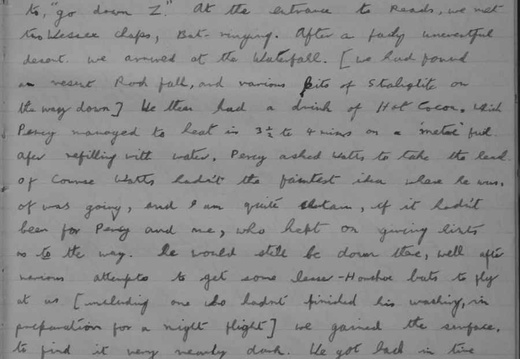 to, "go down Z". At the entrance to Reads, we met
two Wessex chaps, Bat-ringing. After a fairly uneventful
descent we arrived at the Waterfall. [We had found
a recent Rock fall, and various bits of Stalagtite on
the way down] We then had a drink of Hot Cocoa, which
Percy managed to heat in 3½ to 4 mins on a 'meta' fuel
After refilling with water, Percy asked Watts to take the lead
Of Course Watts hadn't the faintest idea where he was,
of was going, and I am quite certain, if it hadn't
been for Percy and me, who kept on giving hints
as to the way. he would still be down there, well after
various attempts to get some lesser-Horshoe bats to fly
at us [including one who hadnt finished his washing, in
preparation for a night flight] we gained the surface,
to find it very nearly dark. We got back in time